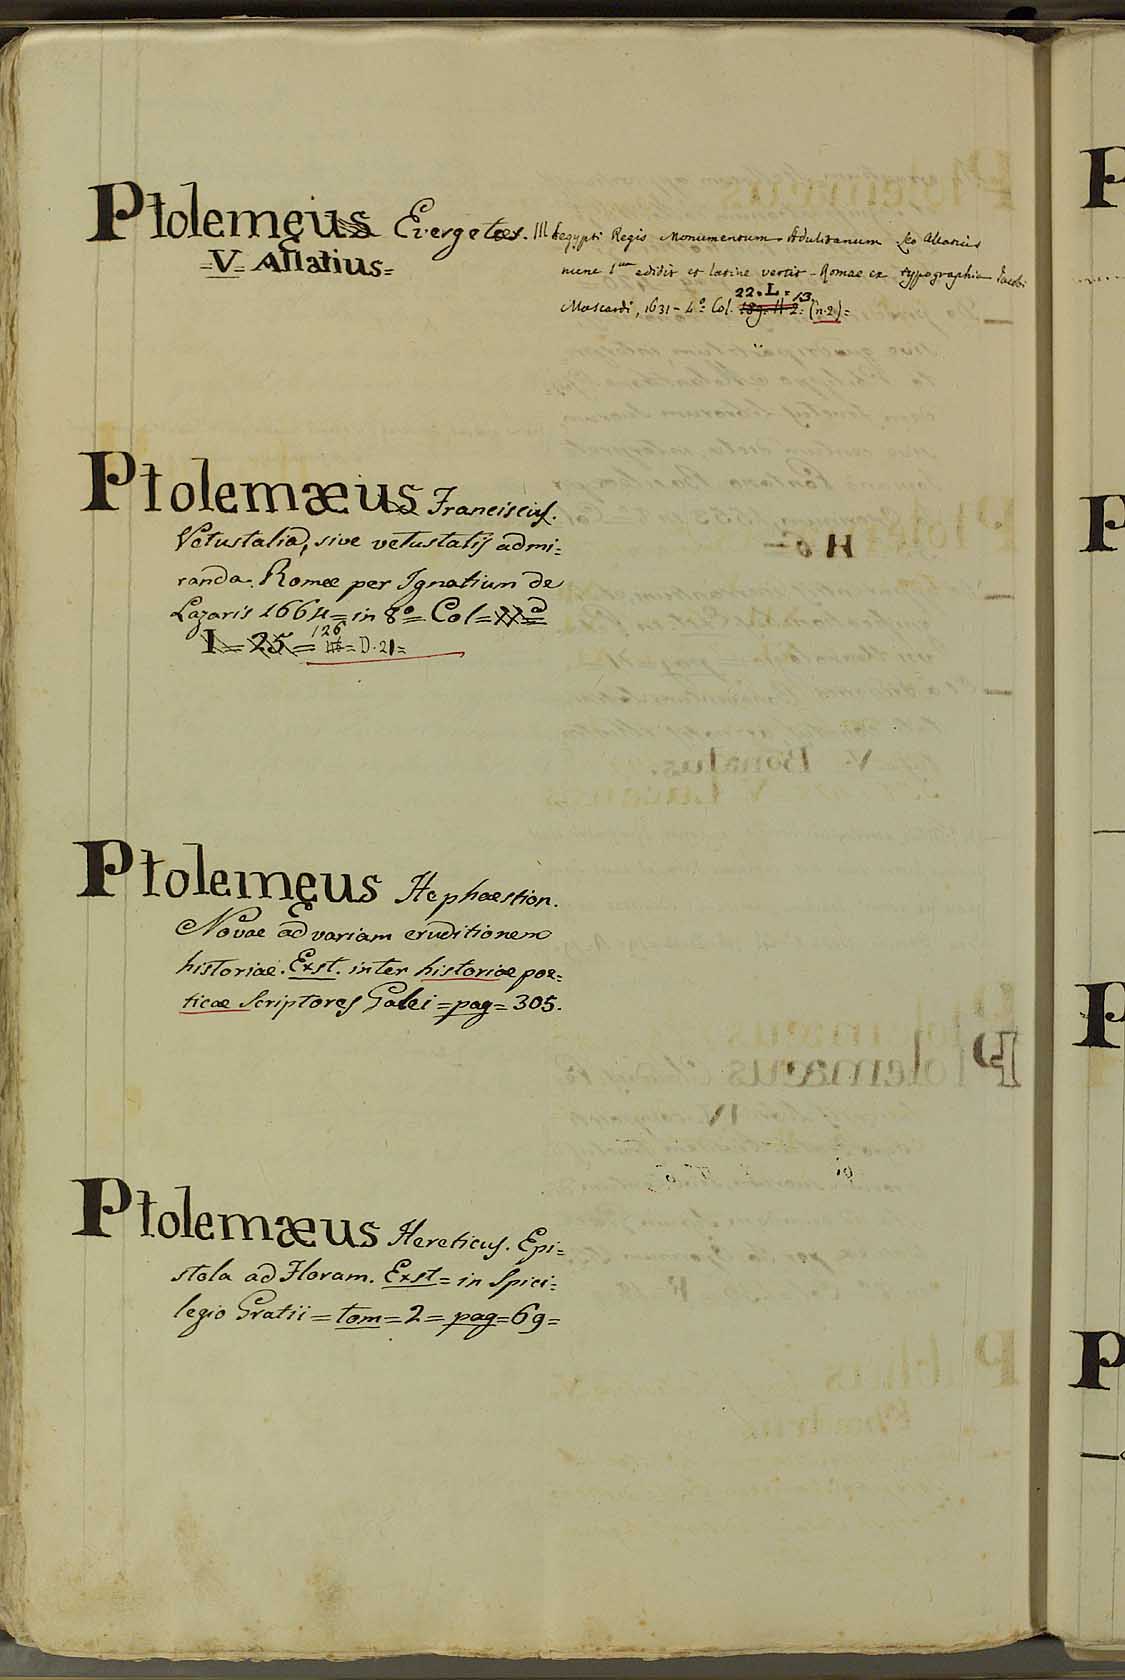 Ptolemęus Evergetes. III Aegypti Regis Monumentum Adulitanum Leo Allatius
=V= Allatius=
nunc 1um edidit et latine vertit - Romae ex typographia Jacobi
Mascardi, 1631 - 4º= Col. 189. H 2= (n.2)=
22. L. 13.
Ptolemæus Franciscus.
Vetustalia, sive vetustatis admi=
randa. Romae per Ignatium de
Lazaris 1664= in 8º= Col= XXª=
I= 25= 126 D. 21=
Ptolemęus Hephaestion.
Novae ad variam eruditionem
historiae. Exst. inter historiae poe=
ticae Scriptores Galei = pag= 305.
Ptolemæus Hereticus. Epi=
stola ad Floram. Exst= in Spici=
legio Gratii = tom= 2= pag= 69=